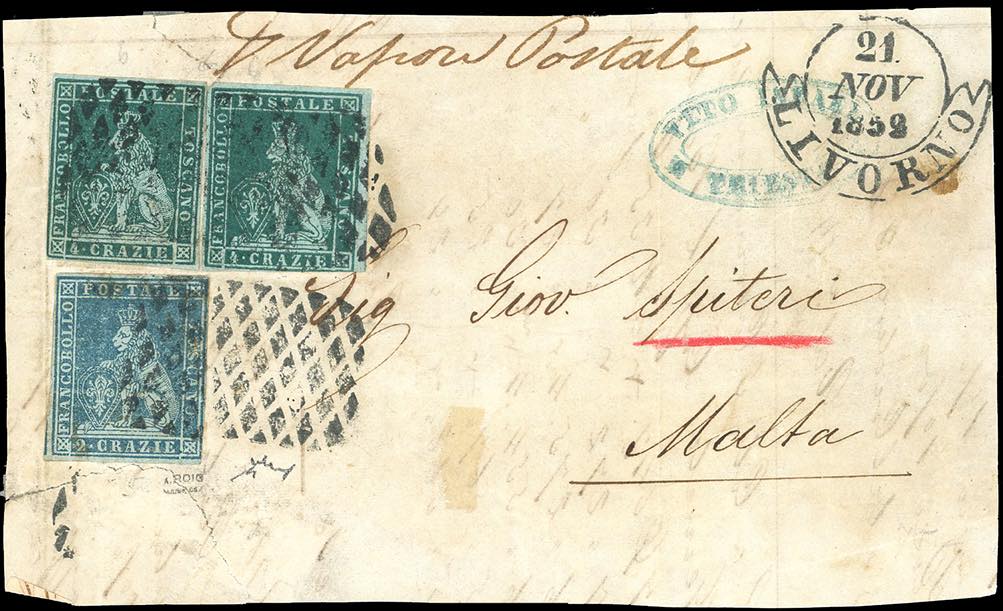 Vapore Postale
21
NOV
1852
LIVORNO
POSTALE
FRANCOBOLLO
TOSCANO
4 · CRAZIE
POSTALE
FRANCOBOLLO
TOSCANO
4 · CRAZIE
POSTALE
FRANCOBOLLO
TOSCANO
2 · CRAZIE
Sig Giov. Spiteri
Malta